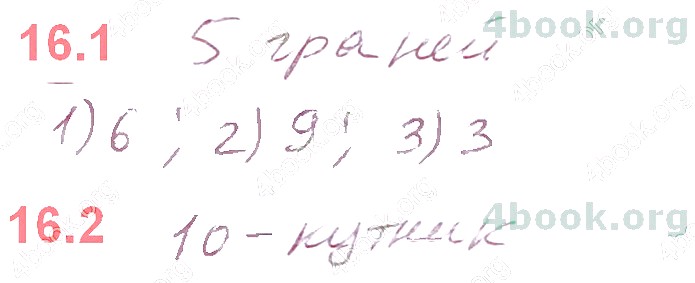 4book.org
16.1 5 граней
1) 6 ; 2) 9 ; 3) 3
4book.org
16.2 10-кутник